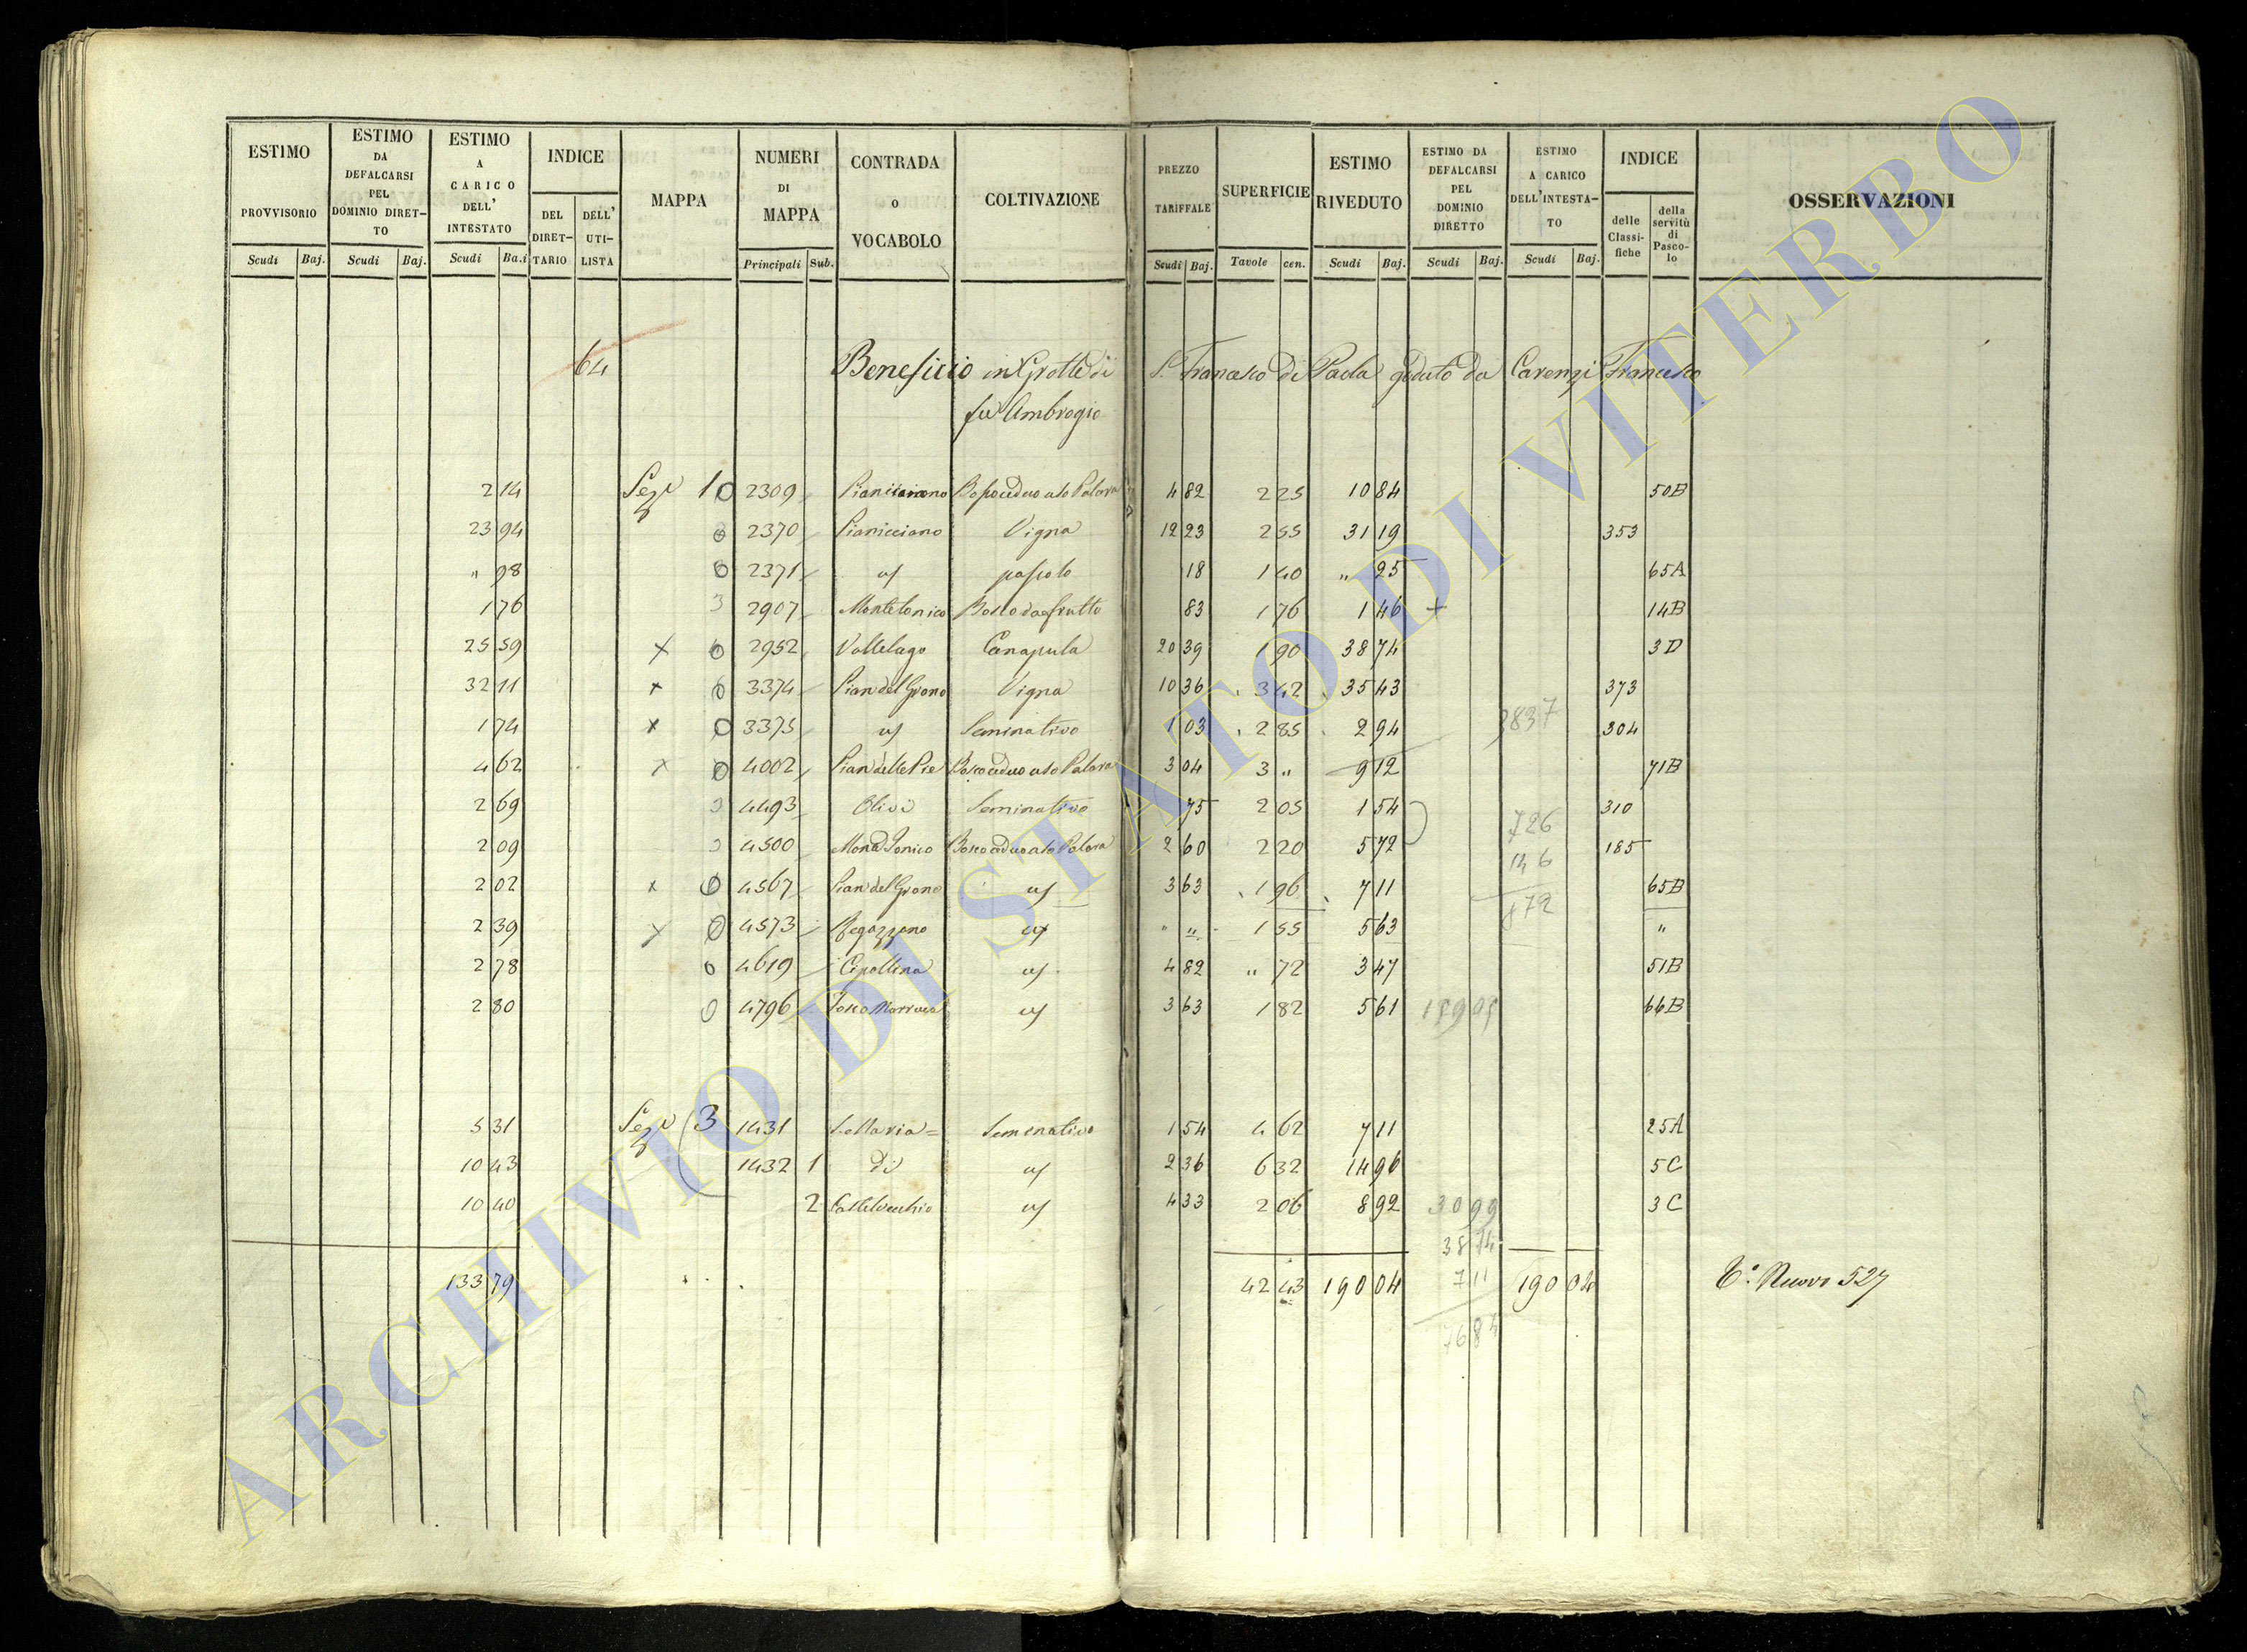 ESTIMO PROVVISORIO
ESTIMO DA DEFALCARSI PEL DOMINIO DIRET-TO
ESTIMO A CARICO DELL' INTESTATO
INDICE
DEL DIRET-TARIO
DELL' UTI-LISTA
MAPPA
NUMERI DI MAPPA
CONTRADA o VOCABOLO
COLTIVAZIONE
PREZZO TARIFFALE
SUPERFICIE
ESTIMO RIVEDUTO
ESTIMO DA DEFALCARSI PEL DOMINIO DIRETTO
ESTIMO A CARICO DELL'INTESTA-TO
INDICE
delle Classi-fiche
della servitù di Pasco-lo
OSSERVAZIONI
Scudi Baj. Scudi Baj. Scudi Ba.i Principali Sub. Scudi Baj. Tavole cen. Scudi Baj. Scudi Baj. Scudi Baj.
64 Beneficio in Grotte di S. Francesco di Paola goduto da Carenzi Francesco
fu Ambrogio
2 14 Sez. 1 0 2309 Pianicciano Bosco ceduo uso Palara 4 82 2 25 10 84 50B
23 94 0 2370 Pianicciano Vigna 12 23 2 55 31 19 353
" 98 0 2371 uj pascolo 18 1 40 " 25 65A
1 76 3 2907 Montetonico Bosco da frutto 83 1 76 1 46 + 14B
25 59 x 0 2952 Vallelago Canapula 20 39 1 90 38 74 3D
32 11 x 0 3374 Pian del Grano Vigna 10 36 3 42 35 43 373
1 74 x 0 3375 uj Seminativo 1 03 2 85 2 94 3837 304
4 62 x 0 4002 Pian delle Pie Bosco ceduo uso Palara 3 04 3 " 9 12 71B
2 69 3 4493 Olivi Seminativo 75 2 05 1 54 310
726
2 09 3 4500 Mone Tonico Bosco ceduo uso Palara 2 60 2 20 5 72 185
146
2 02 x 0 4567 Pian del Grano uj 3 63 1 96 7 11 65B
872
2 39 x 0 4573 Regazzano uj " " 1 55 5 63 "
2 78 0 4619 Cipollina uj 4 82 " 72 3 47 51B
2 80 0 4796 uj 3 63 1 82 5 61 66B
5 31 Sez. 3 1431 S. Maria= Seminativo 1 54 4 62 7 11 25A
10 43 1432 1 di uj 2 36 6 32 14 96 5C
10 40 2 Castelvecchio uj 4 33 2 06 8 92 30 99 3C
38 74
133 79 42 43 190 04 7 11 190 04 T.° Nuovo 527
76 84
ARCHIVIO DI STATO DI VITERBO